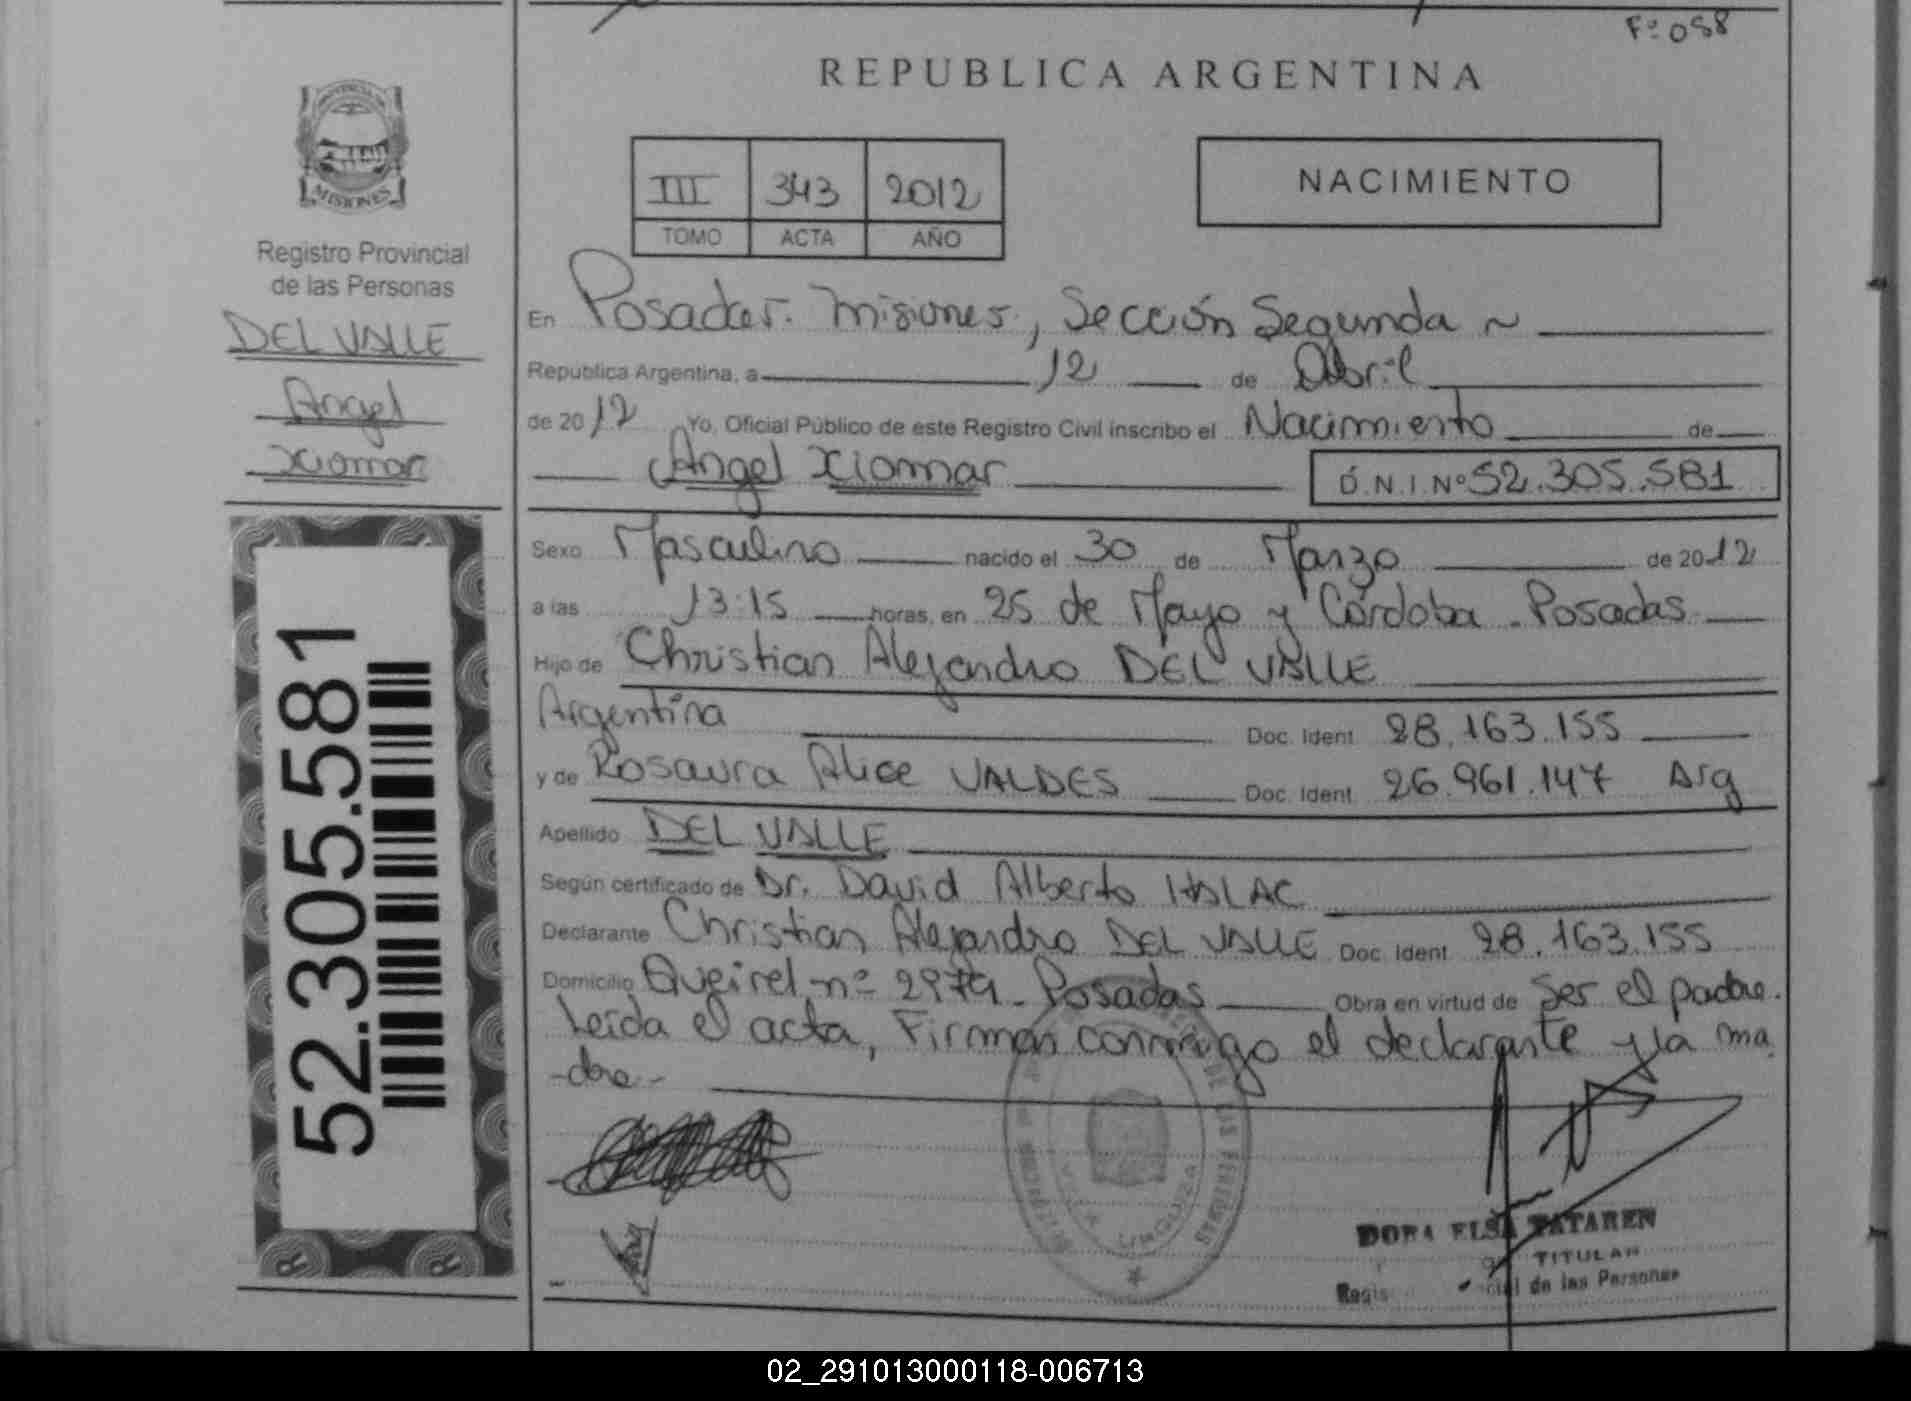 Fº 058
REPUBLICA ARGENTINA
PROVINCIA DE
MISIONES
Registro Provincial
de las Personas
DEL VALLE
Angel
Xiomar
III 343 2012
TOMO ACTA AÑO
NACIMIENTO
En Posadas. Misiones, Sección Segunda ~
República Argentina, a 12 de Abril
de 2012 Yo, Oficial Público de este Registro Civil inscribo el Nacimiento de
Angel Xiomar D.N.I. Nº 52.305.581
Sexo Masculino nacido el 30 de Marzo de 2012
a las 13:15 horas, en 25 de Mayo y Córdoba - Posadas
Hijo de Christian Alejandro DEL VALLE
Argentina Doc. Ident. 28.163.155
y de Rosaura Alice VALDES Doc. Ident. 26.961.147 Arg
Apellido DEL VALLE
Según certificado de Dr. David Alberto HALAC
Declarante Christian Alejandro DEL VALLE Doc. Ident. 28.163.155
Domicilio Queirel nº Posadas Obra en virtud de Ser el padre.
Leída el acta, Firman conmigo el declarante y la ma
-dre-
52.305.581
DE LAS PERSONAS
VILLA URQUIZA
DORA ELSA TATAREN
TITULAR
de las Personas
02_291013000118-006713